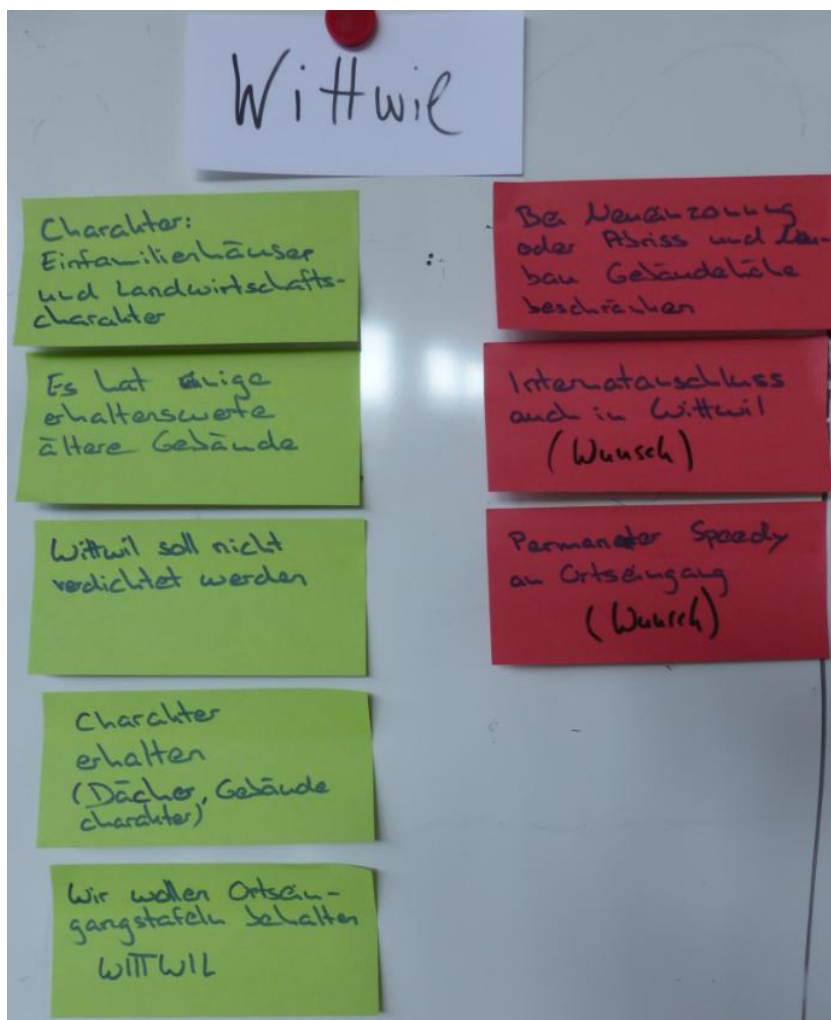 Wittwil
Charakter:
Einfamilienhäuser
und Landwirtschafts-
charakter
Es hat einige
erhaltenswerte
ältere Gebäude
Wittwil soll nicht
verdichtet werden
Charakter
erhalten
(Dächer, Gebäude
charakter)
Wir wollen Ortsein-
gangstafeln behalten
WITTWIL
Bei Neueinzonung
oder Abriss und Neu-
bau Gebäudehöhe
beschränken
Internetanschluss
auch in Wittwil
(Wunsch)
Permanenter Speedy
an Ortseingang
(Wunsch)